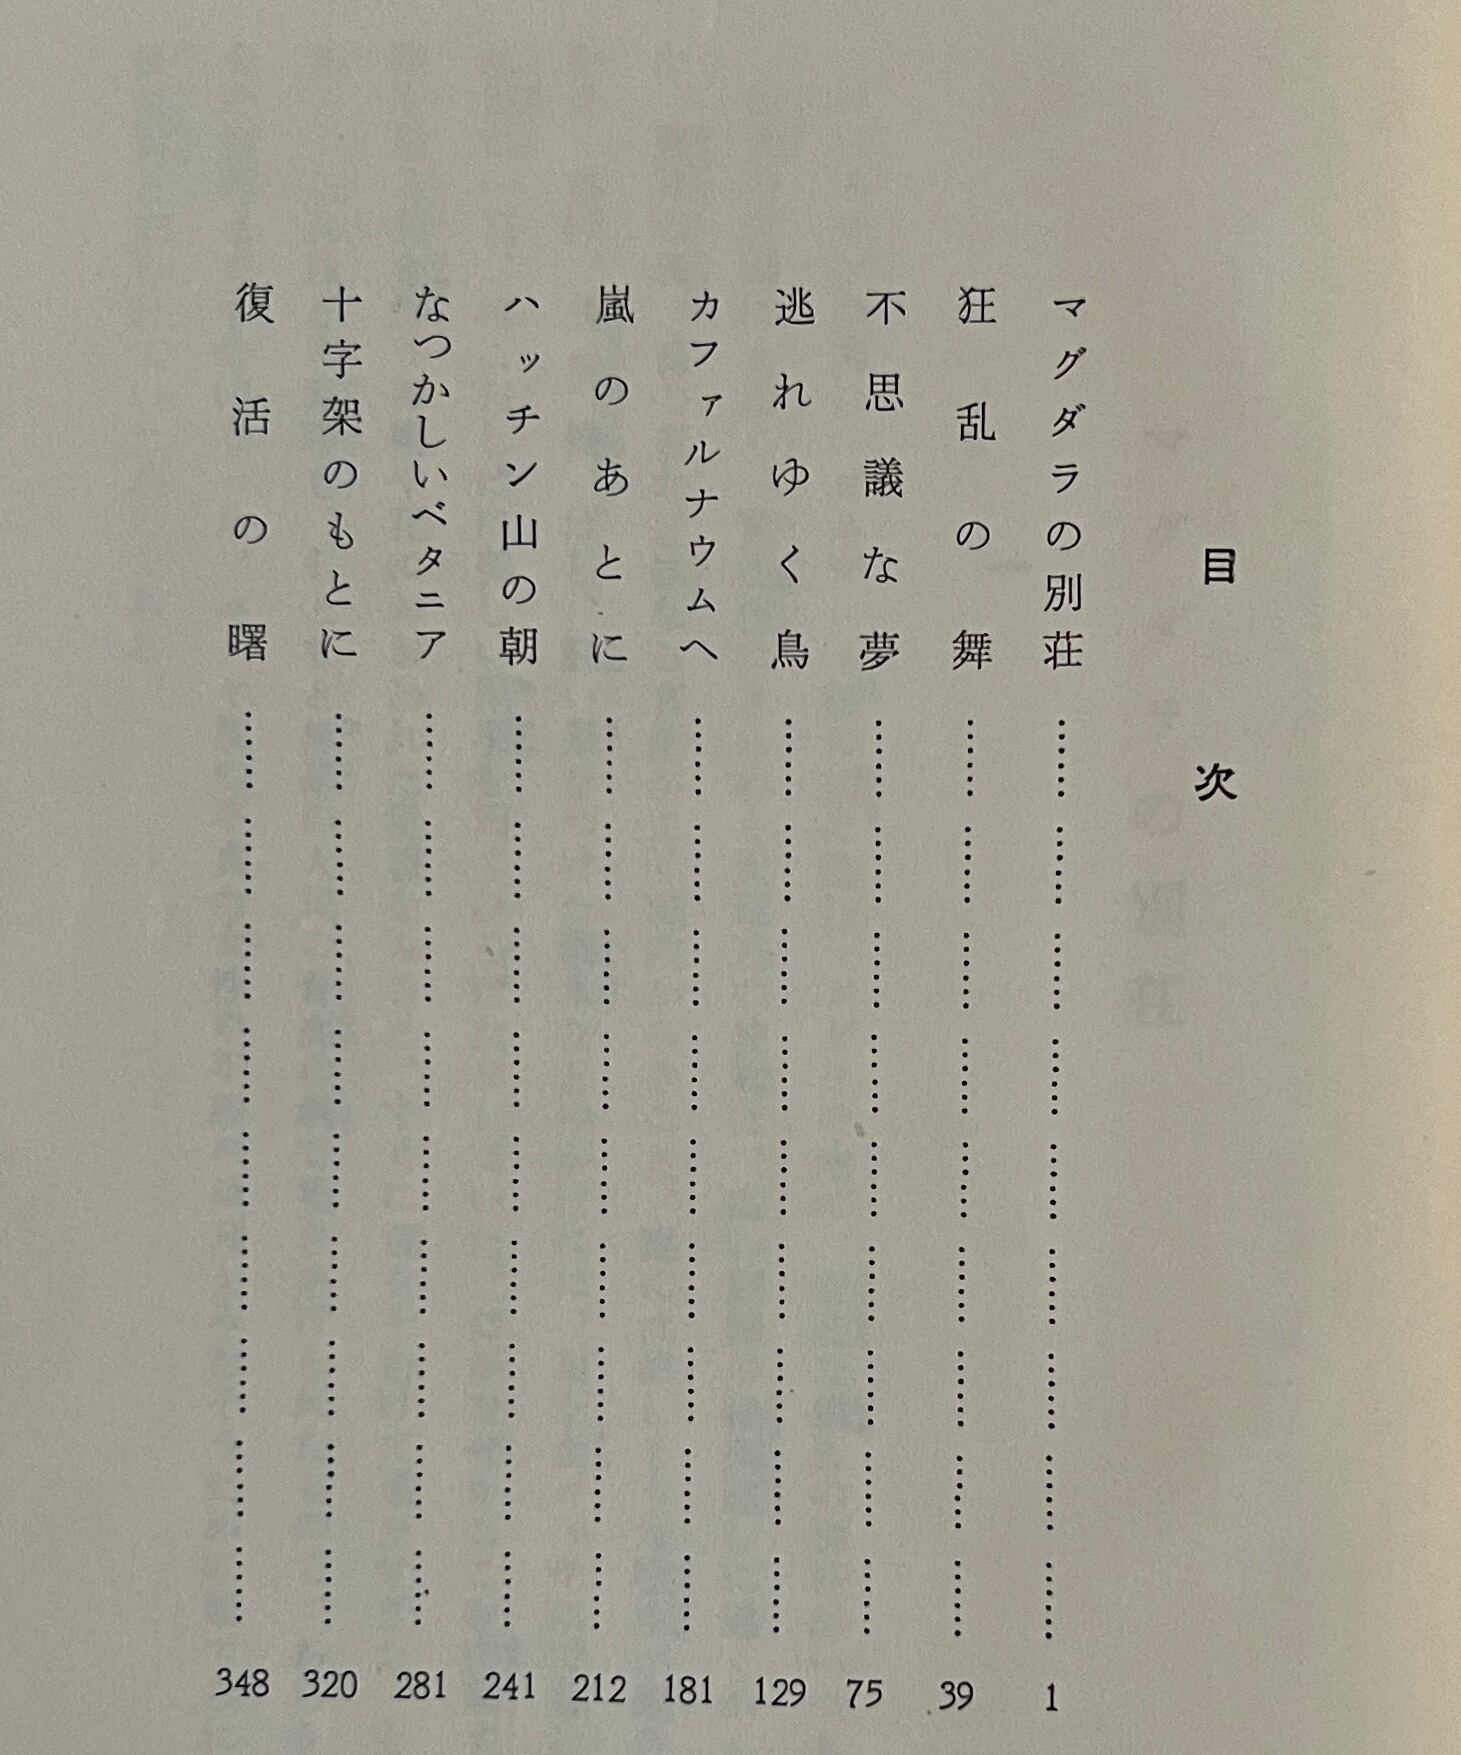 目次
マグダラの別荘……………………………………………………1
狂乱の舞……………………………………………………39
不思議な夢……………………………………………………75
逃れゆく鳥……………………………………………………129
カファルナウムへ……………………………………………………181
嵐のあとに……………………………………………………212
ハッチン山の朝……………………………………………………241
なつかしいベタニア……………………………………………………281
十字架のもとに……………………………………………………320
復活の曙……………………………………………………348